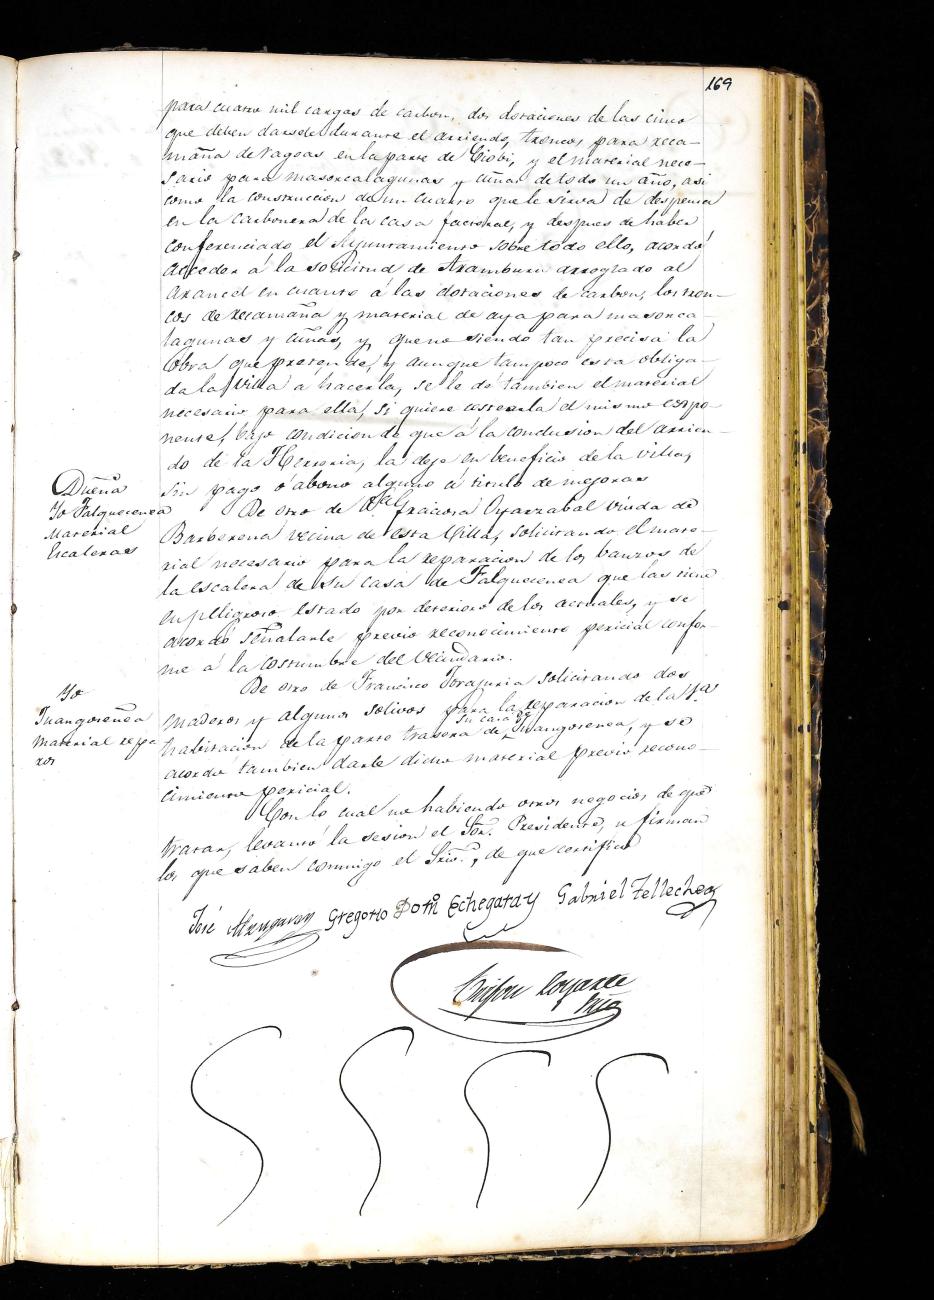 169
para cuatro mil cargas de carbon, dos dotaciones de las cinco
que deben darsele durante el arriendo, troncos para reca-
maña de Vagoas en la parte de Ciobi, y el material nece-
sario para masorcalagunas y cuñas de todo un año, asi
como la construccion de un cuarto que le sirva de despensa
en la carbonera de la casa factoral, y despues de haber
conferenciado el Ayuntamiento sobre todo ello, acordó
acceder á la solicitud de Aramburu arreglado al
arancel en cuanto á las dotaciones de carbon, los tron-
cos de recamaña y material de aya para masorca-
lagunas y cuñas, y, que no siendo tan precisa la
obra que pretende, y aunque tampoco esta obliga-
da la Villa a hacerla, se le dé tambien el material
necesario para ella, si quiere costearla el mismo espo-
nente, bajo condicion de que á la conclusion del arrien-
do de la Herreria, la deje en beneficio de la villa,
sin pago ó abono alguno á titulo de mejoras
Dueña
Yo Falquecenea
Material
Escaleras
De otro de D.ª Graciosa Oyarzabal viuda de
Barberena vecina de esta Villa, solicitando el mate-
rial necesario para la reparacion de los banzos de
la escalera de su casa de Falquecenea que las tiene
en peligroso estado por deterioro de los actuales, y se
acordó señalarle previo reconocimiento pericial confor-
me á la costumbre del Vecindario.
Yo
Inangoreñea
Material repa
ros
De otro de Francisco Torajuria solicitando dos
maderos y algunos solivos para la reparacion de la 1ª
habitacion de la parte trasera de su casa de Inangorenea, y se
acordó tambien darle dicho material previo recono-
cimiento pericial.
Con lo cual no habiendo otros negocios de que
tratar, levantó la sesion el Sor. Presidente, y firman
los que saben conmigo el Srio., de que certifico
José Gregorio Dotn Echegaray Gabriel Tellechea
Srio